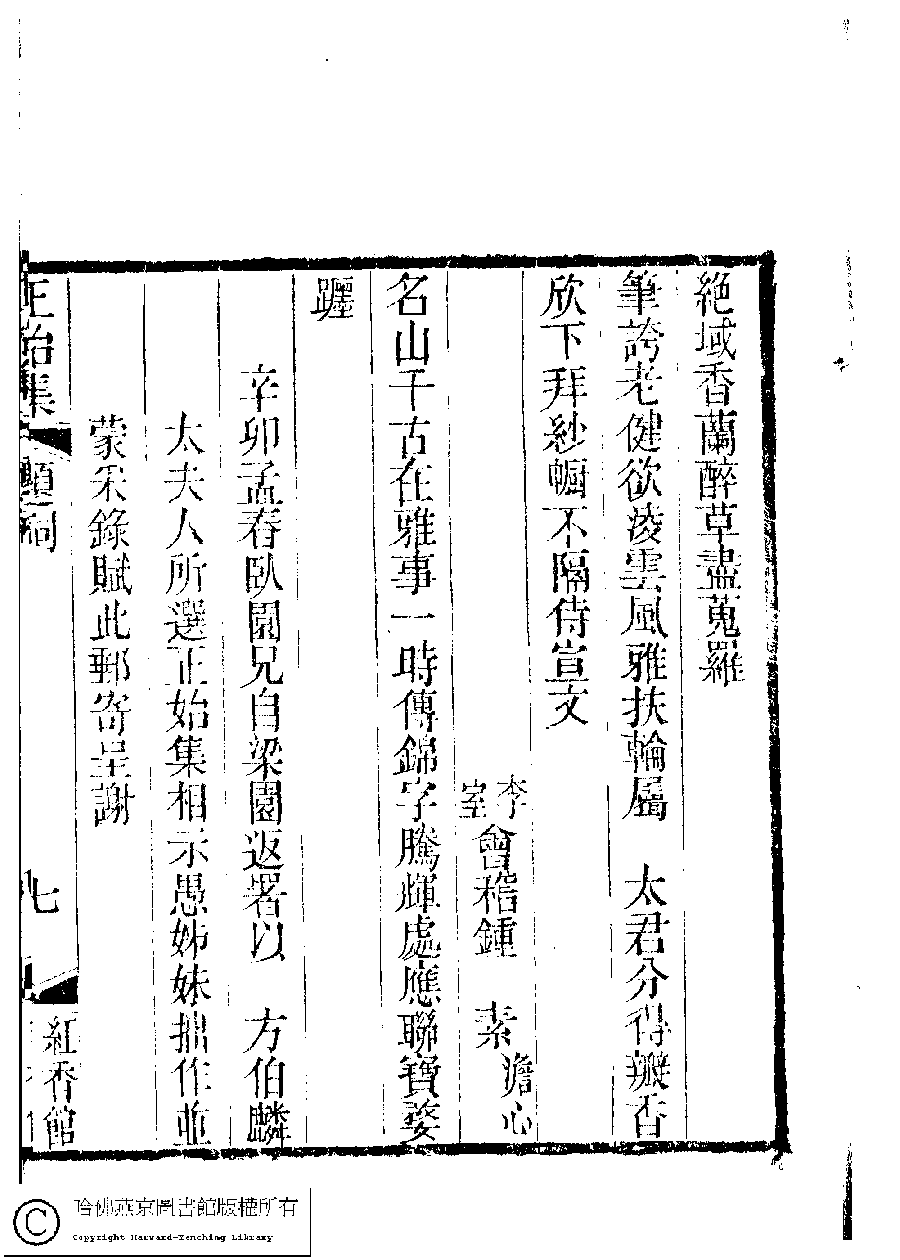 絕域香蘭醉草盡蒐羅
筆誇老健欲淩雲風雅扶輪屬　太君分得瓣香
欣下拜紗幮不隔侍宣文
李室會稽鍾　素澹心
名山千古在雅事一時傳錦字騰輝處應聯寶婺
躔
辛卯孟春臥園兄自梁園返署以　方伯麟
太夫人所選正始集相示愚姊妹拙作並
蒙采錄賦此郵寄呈謝
正始集　題詞　七　紅香館
哈佛燕京圖書館版權所有
Copyright Harvard-Yenching Library